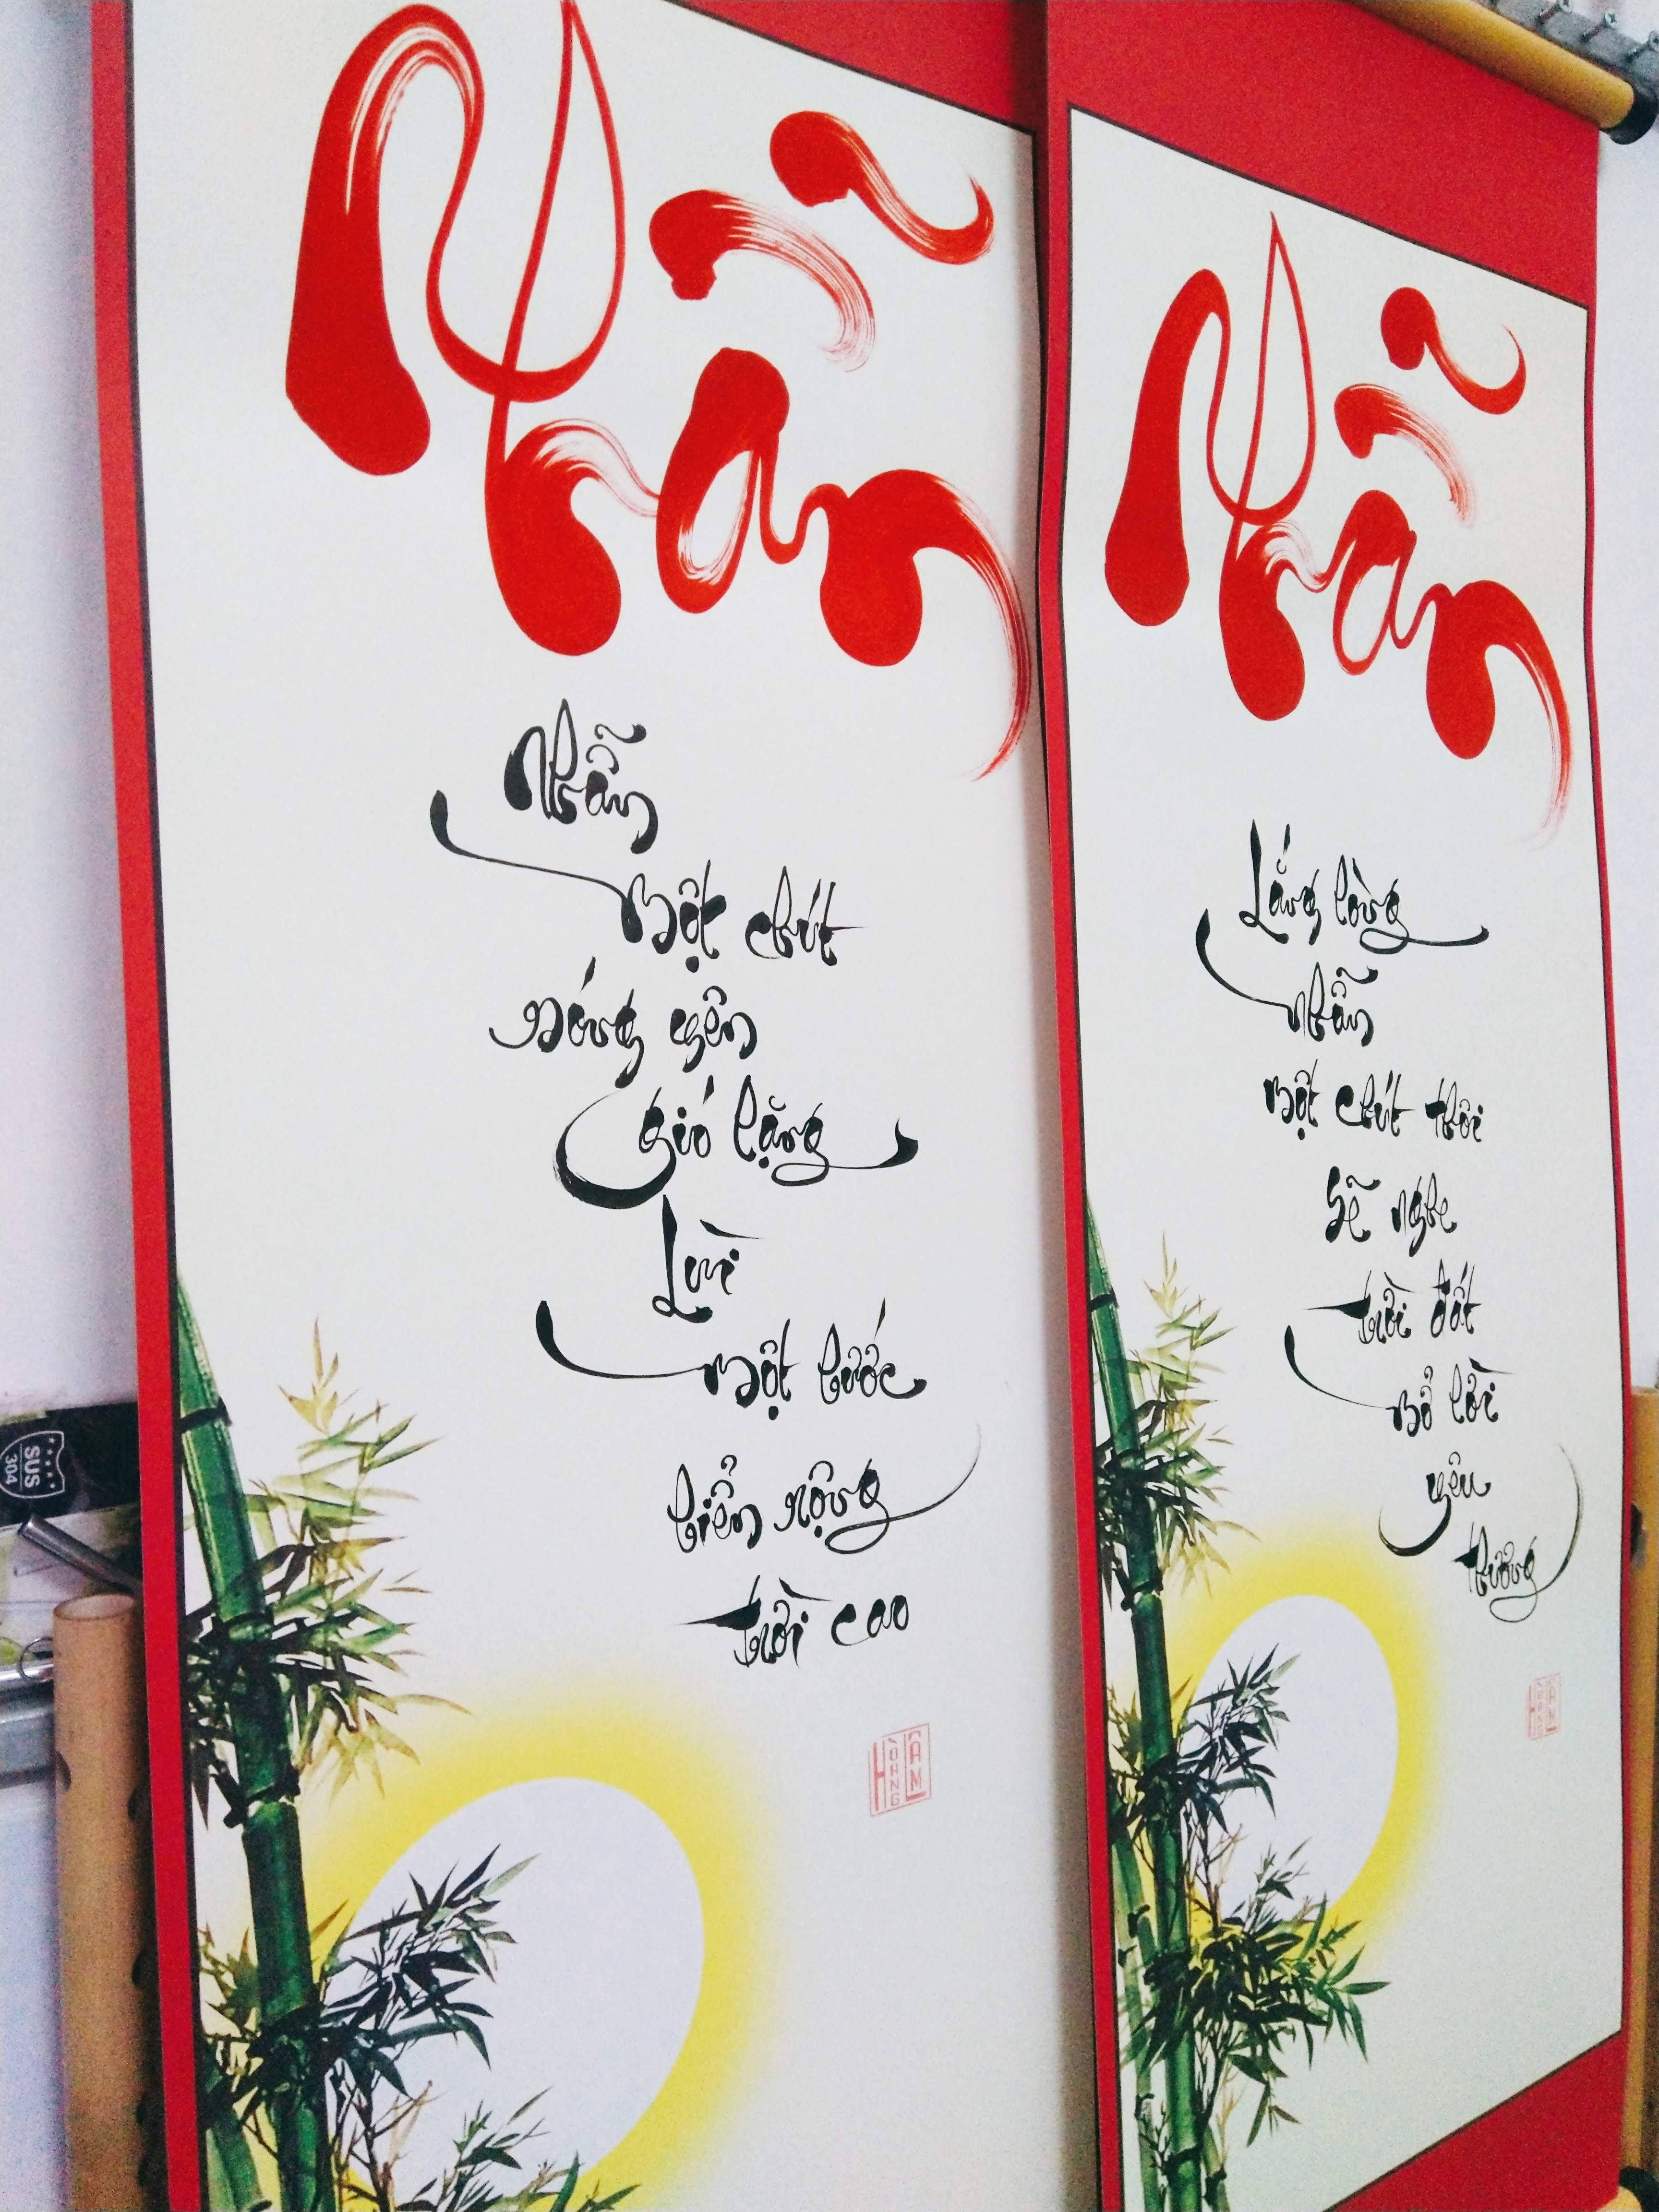 Nhẫn
Nhẫn
một chút
sóng yên
gió lặng
Lùi
một bước
biển rộng
trời cao
HOÀNG LÂM
Nhẫn
Lắng lòng
nhẫn
một chút thôi
Sẽ nghe
trời đất
mở lời
yêu
thương
HOÀNG LÂM
SUS
304